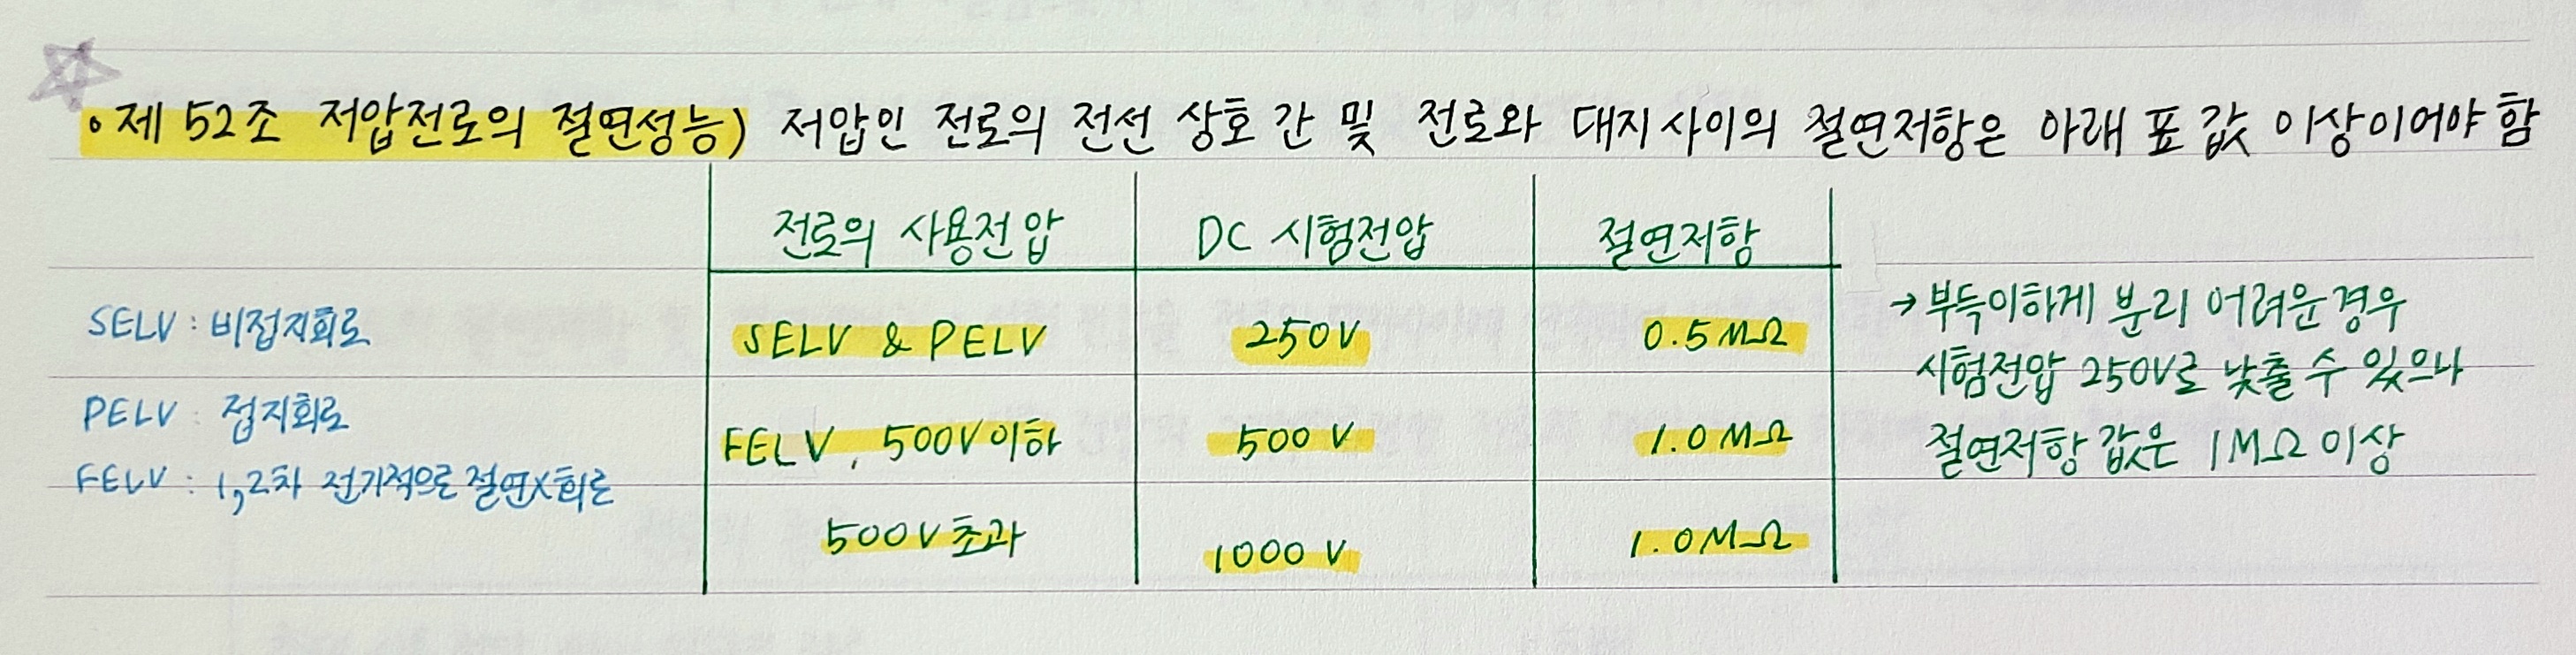 • 제 52조 저압전로의 절연성능) 저압인 전로의 전선 상호 간 및 전로와 대지 사이의 절연저항은 아래 표 값 이상이어야 함
전로의 사용전압 DC 시험전압 절연저항
SELV : 비접지회로
PELV : 접지회로
FELV : 1,2차 전기적으로 절연X회로
SELV & PELV 250V 0.5MΩ
FELV, 500V이하 500V 1.0MΩ
500V초과 1000V 1.0MΩ
→ 부득이하게 분리 어려운 경우
시험전압 250V로 낮출 수 있으나
절연저항 값은 1MΩ 이상